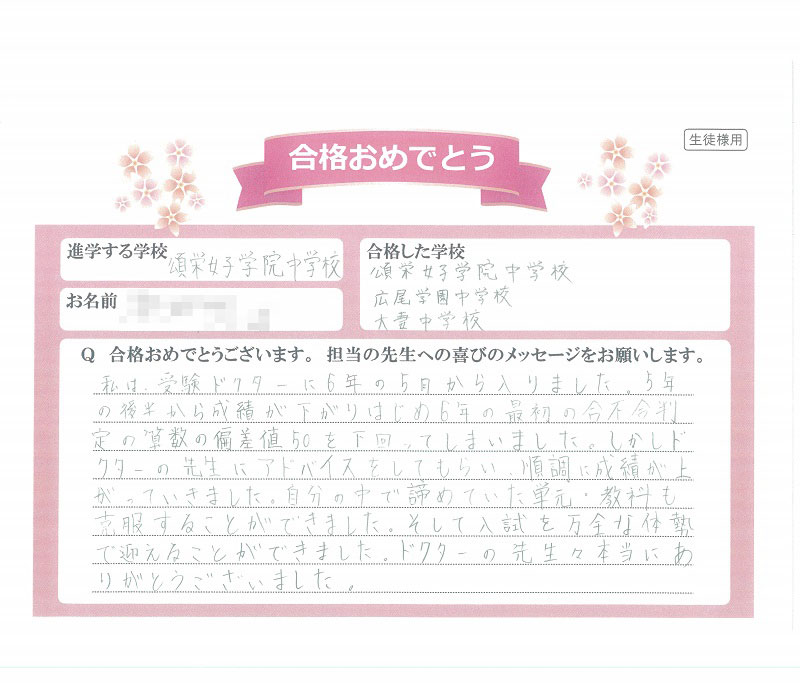 生徒様用
合格おめでとう
進学する学校
頌栄女子学院中学校
お名前
合格した学校
頌栄女子学院中学校
広尾学園中学校
大妻中学校
Q 合格おめでとうございます。担当の先生への喜びのメッセージをお願いします。
私は、受験ドクターに6年の5月から入りました。5年
の後半から成績が下がりはじめ6年の最初の合不合判
定の算数の偏差値50を下回ってしまいました。しかしド
クターの先生にアドバイスをしてもらい、順調に成績が上
がっていきました。自分の中で諦めていた単元・教科も
克服することができました。そして入試を万全な体勢
で迎えることができました。ドクターの先生々本当にあ
りがとうございました。